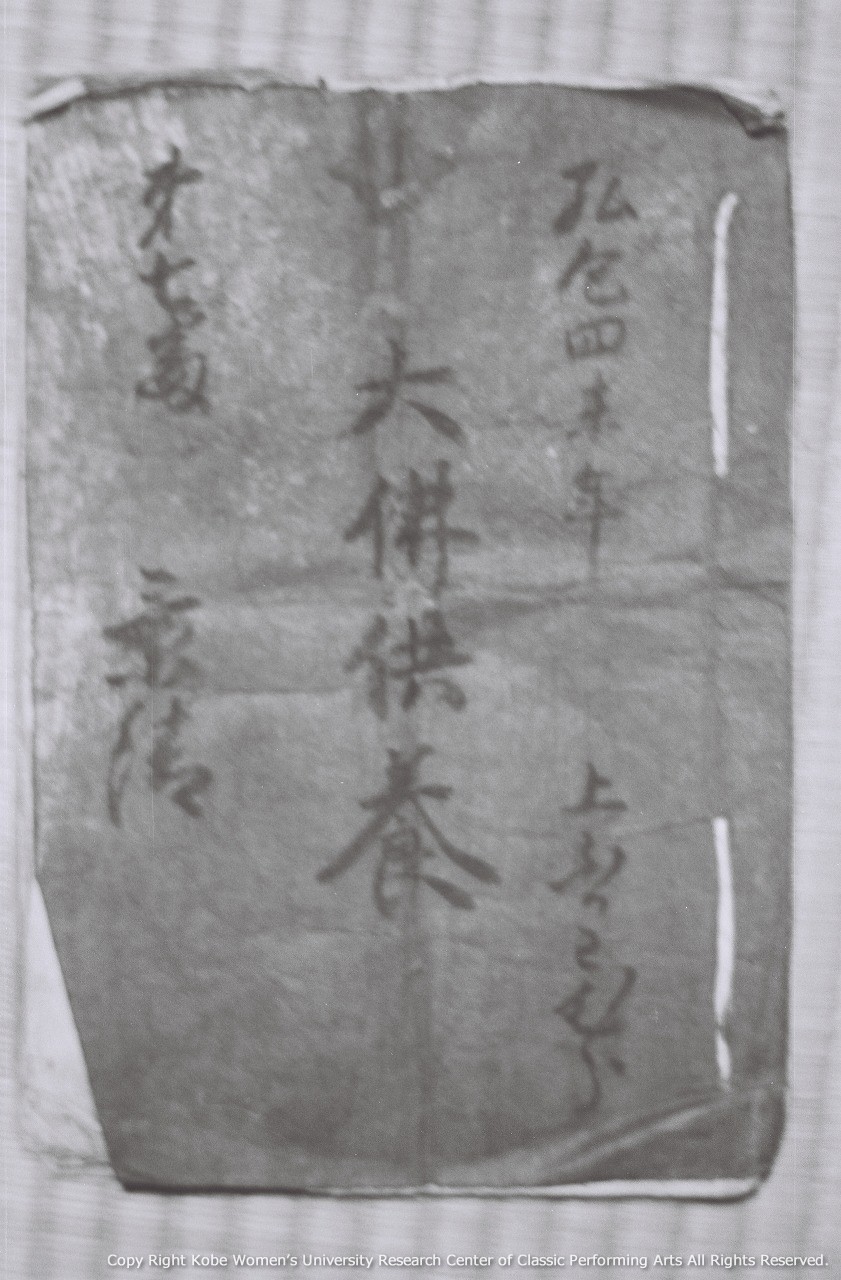 弘化四未年 上
大佛供養
才七番 景清
Copy Right Kobe Women's University Research Center of Classic Performing Arts All Rights Reserved.